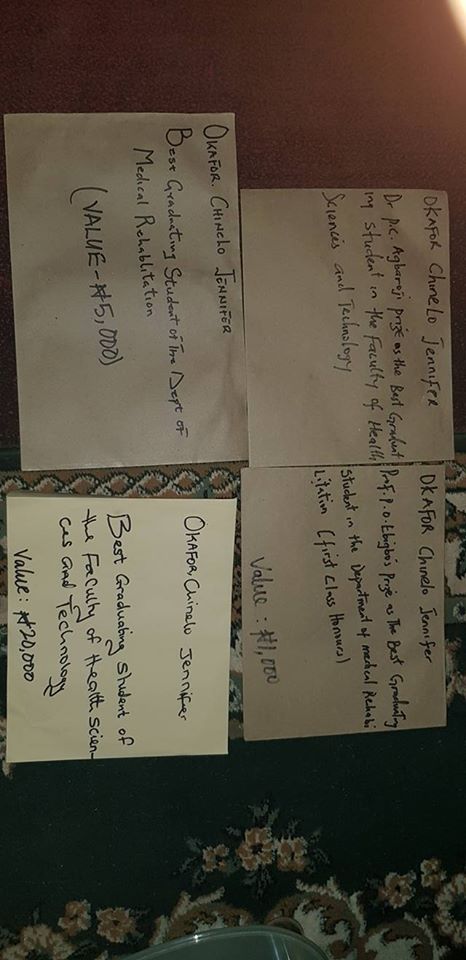 OKAFOR Chinelo Jennifer
Dr P.C. Agbaroji prize as the Best Graduat
ing student in the Faculty of Health
Sciences and Technology
OKAFOR Chinelo Jennifer
Prof. P.O. Ebigbo's Prize as the Best Graduating
Student in the Department of medical Rehabi
litation (first class Honours)
Value : ₦1,000
OKAFOR. CHINELO JENNIFER
BEST GRADUATING STUDENT OF THE DEPT OF
MEDICAL REHABLITATION
(VALUE - ₦5,000)
OKAFOR Chinelo Jennifer
Best Graduating Student of
the Faculty of Health Scien-
ces and Technology
Value: ₦20,000